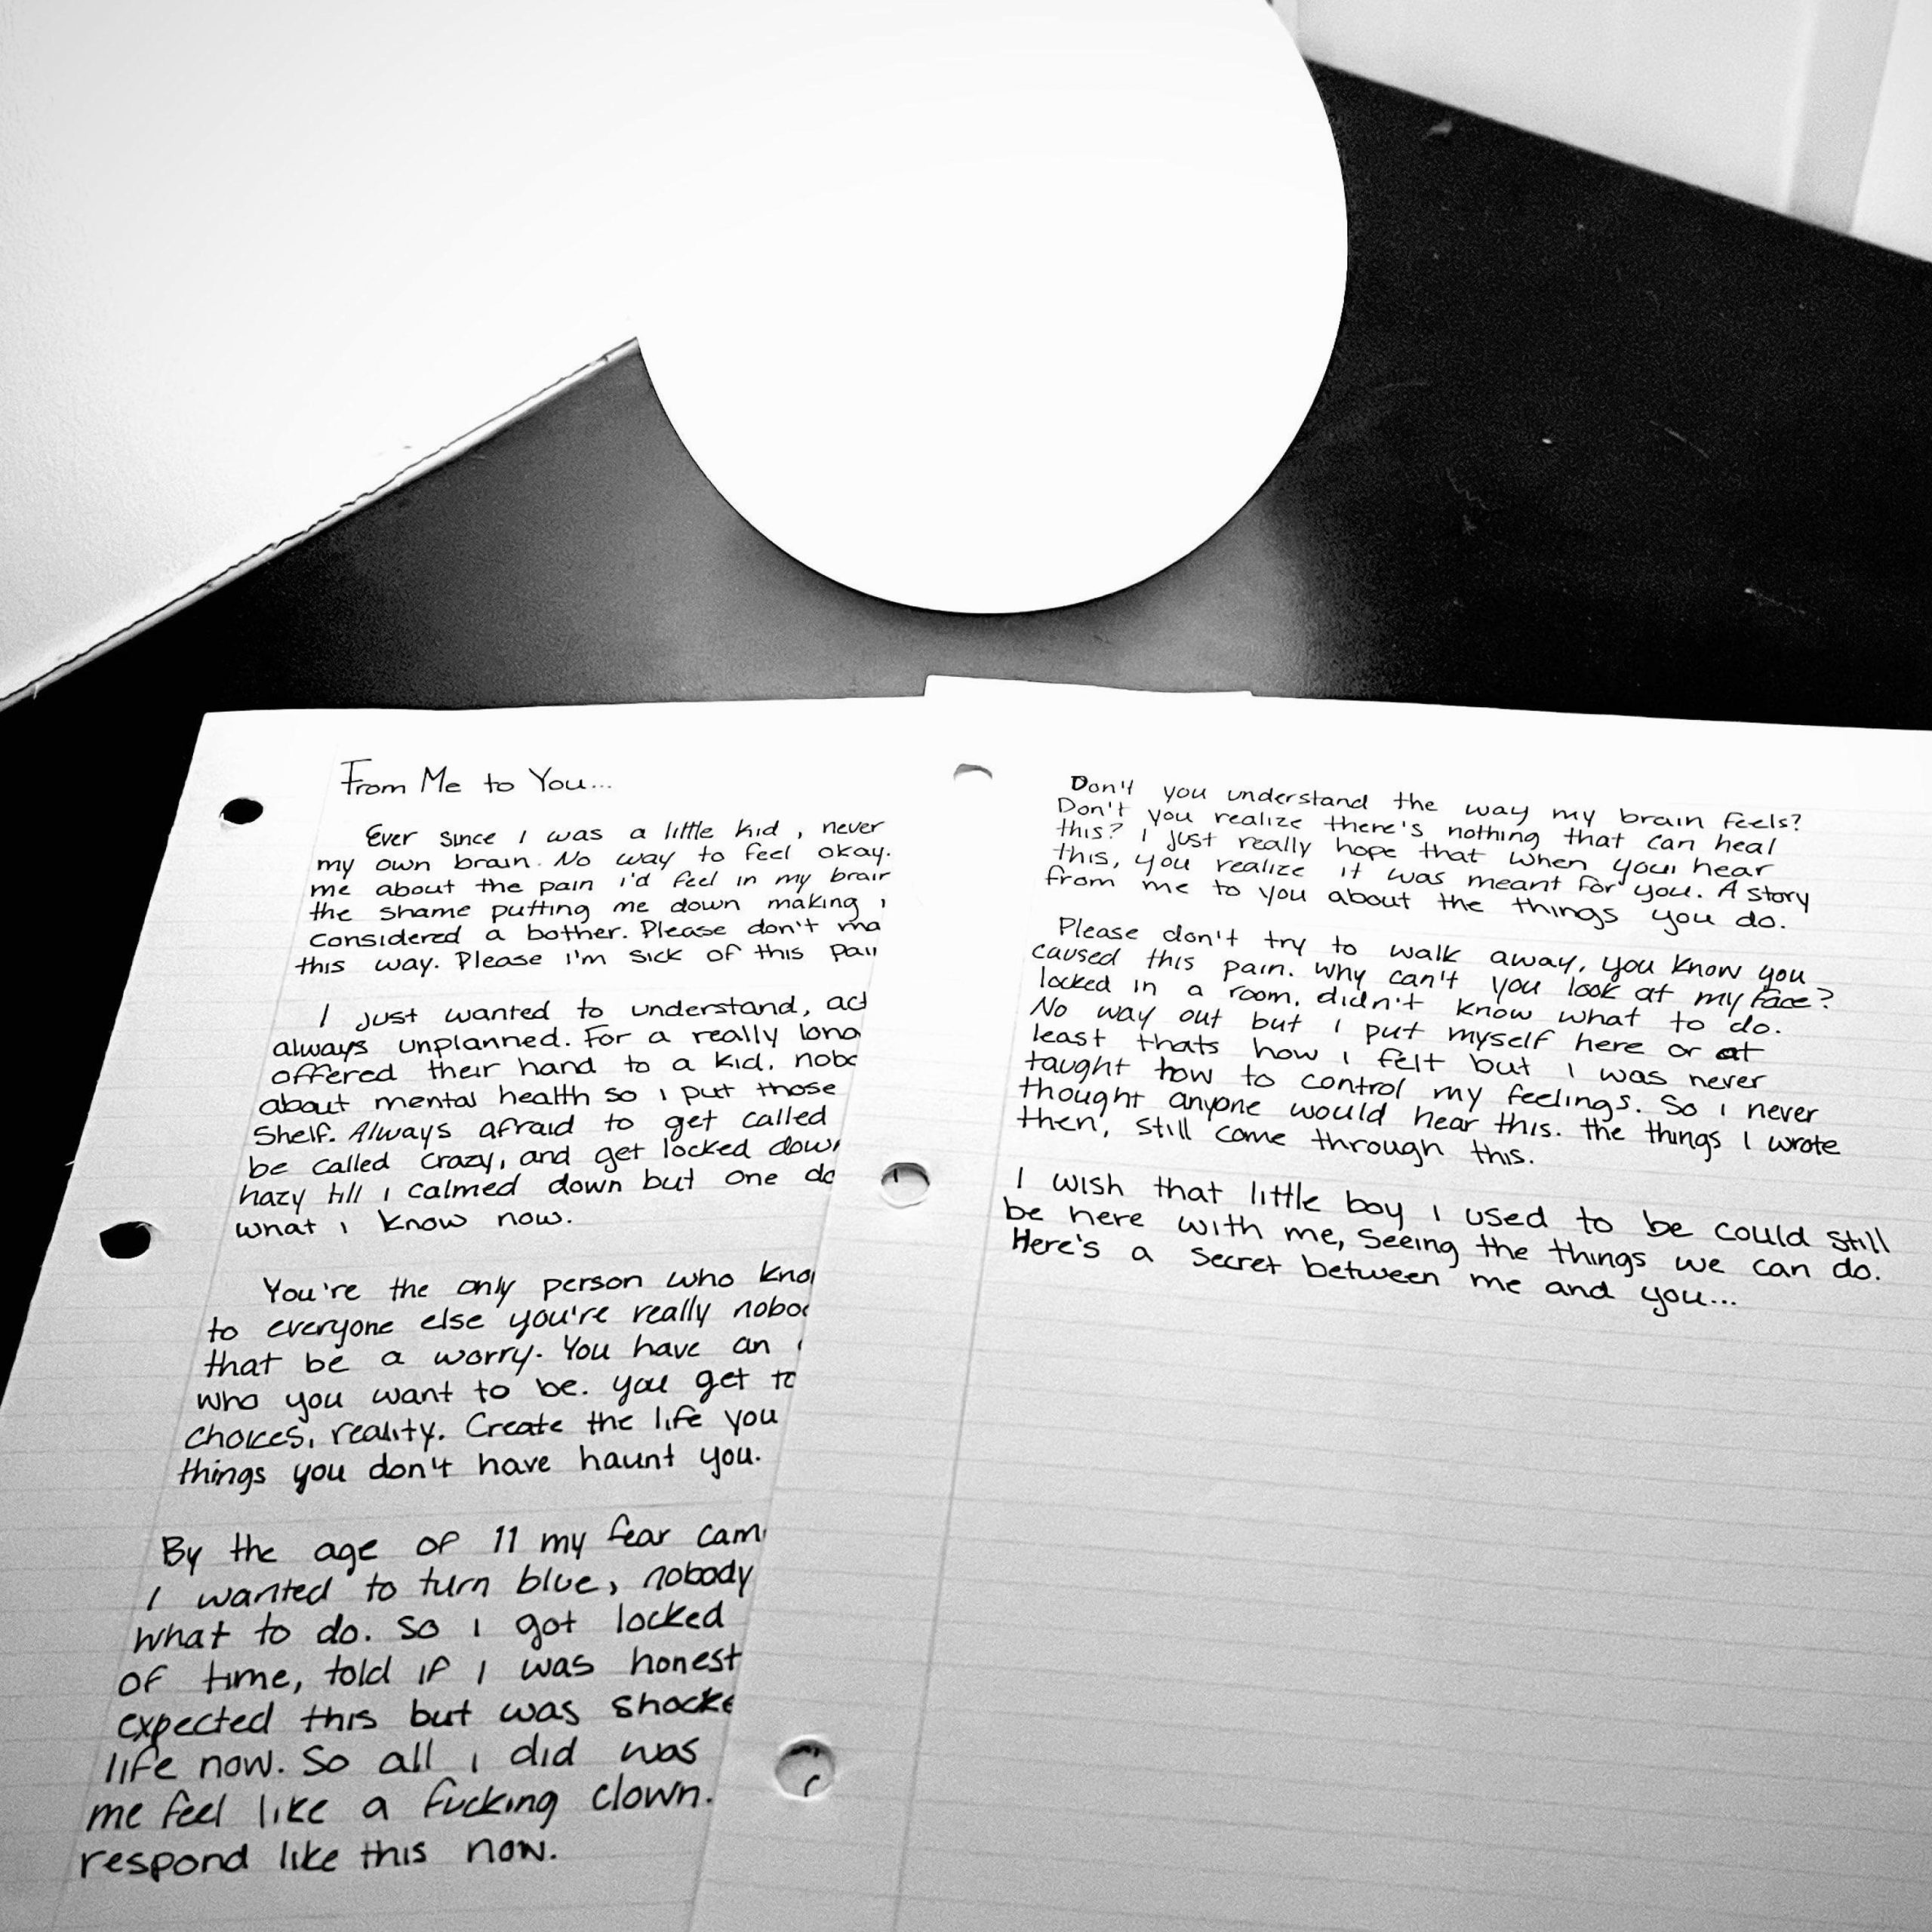 From Me to You...
Ever since I was a little kid, never
my own brain. No way to feel okay.
me about the pain i'd feel in my brain
the shame putting me down making
considered a bother. Please don't ma
this way. Please I'm sick of this pai
I just wanted to understand, act
always unplanned. For a really long
offered their hand to a kid, nobo
about mental health so i put those
shelf. Always afraid to get called
be called crazy, and get locked down
hazy till i calmed down but one da
what i know now.
You're the only person who know
to everyone else you're really nobod
that be a worry. You have an
who you want to be. you get to
choices, reality. Create the life you
things you don't have haunt you.
By the age of 11 my fear cam
I wanted to turn blue, nobody
what to do. so i got locked
of time, told if I was honest
expected this but was shocke
life now. So all i did was
me feel like a fucking clown.
respond like this now.
Don't you understand the way my brain feels?
Don't you realize there's nothing that can heal
this? I just really hope that when your hear
this, you realize it was meant for you. A story
from me to you about the things you do.
Please don't try to walk away, you know you
caused this pain. Why can't you look at my face?
locked in a room, didn't know what to do.
No way out but i put myself here or at
least thats how i felt but i was never
taught how to control my feelings. So i never
thought anyone would hear this. the things I wrote
then, still come through this.
I wish that little boy i used to be could still
be here with me, seeing the things we can do.
Here's a secret between me and you...